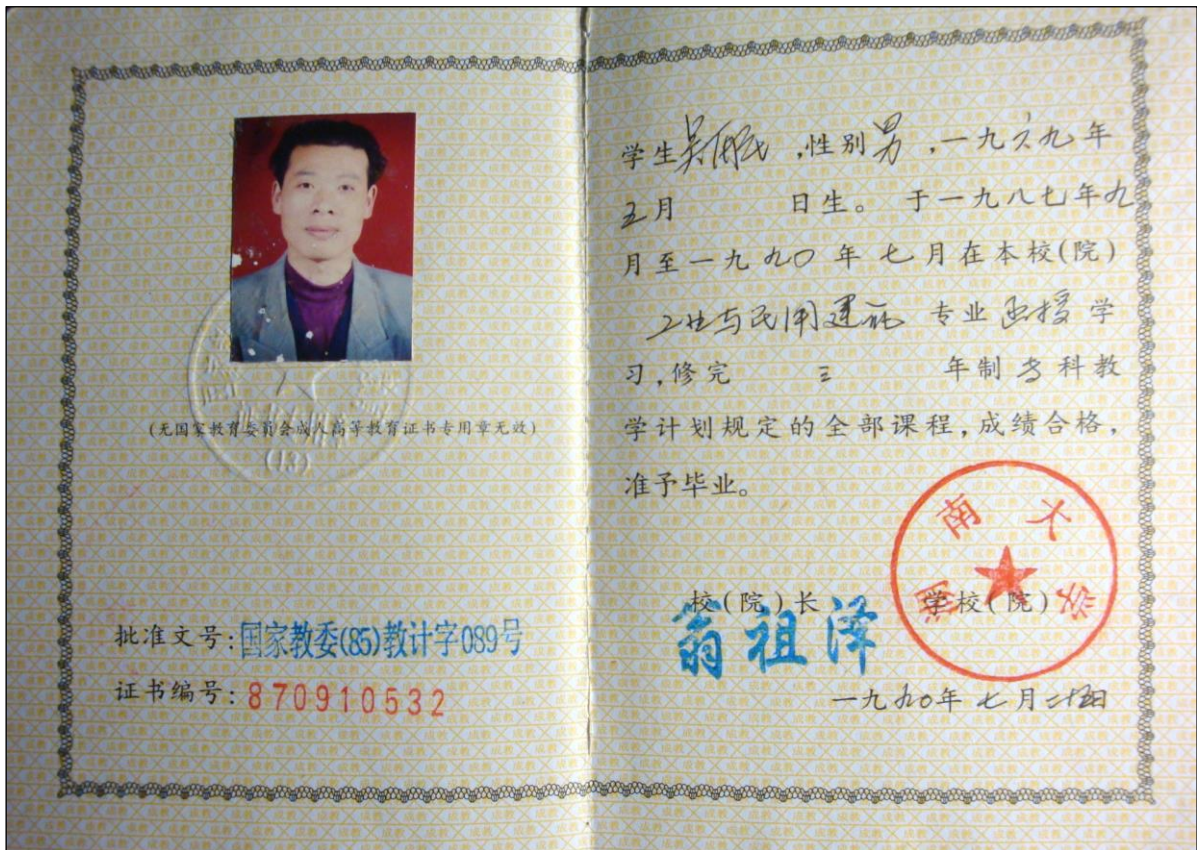 (无国家教育委员会成人高等教育证书专用章无效)
(13)
批准文号:国家教委(85)教计字089号
证书编号:870910532
学生吴 ,性别男,一九六九年
五月 日生。 于一九八七年九
月至一九九〇年 七月在本校(院)
工业与民用建筑 专业函授学
习,修完 三 年制专科教
学计划规定的全部课程,成绩合格,
准予毕业。
湖南大学
校(院)长 学校(院)
翁祖泽
一九九〇年 七月二十五日